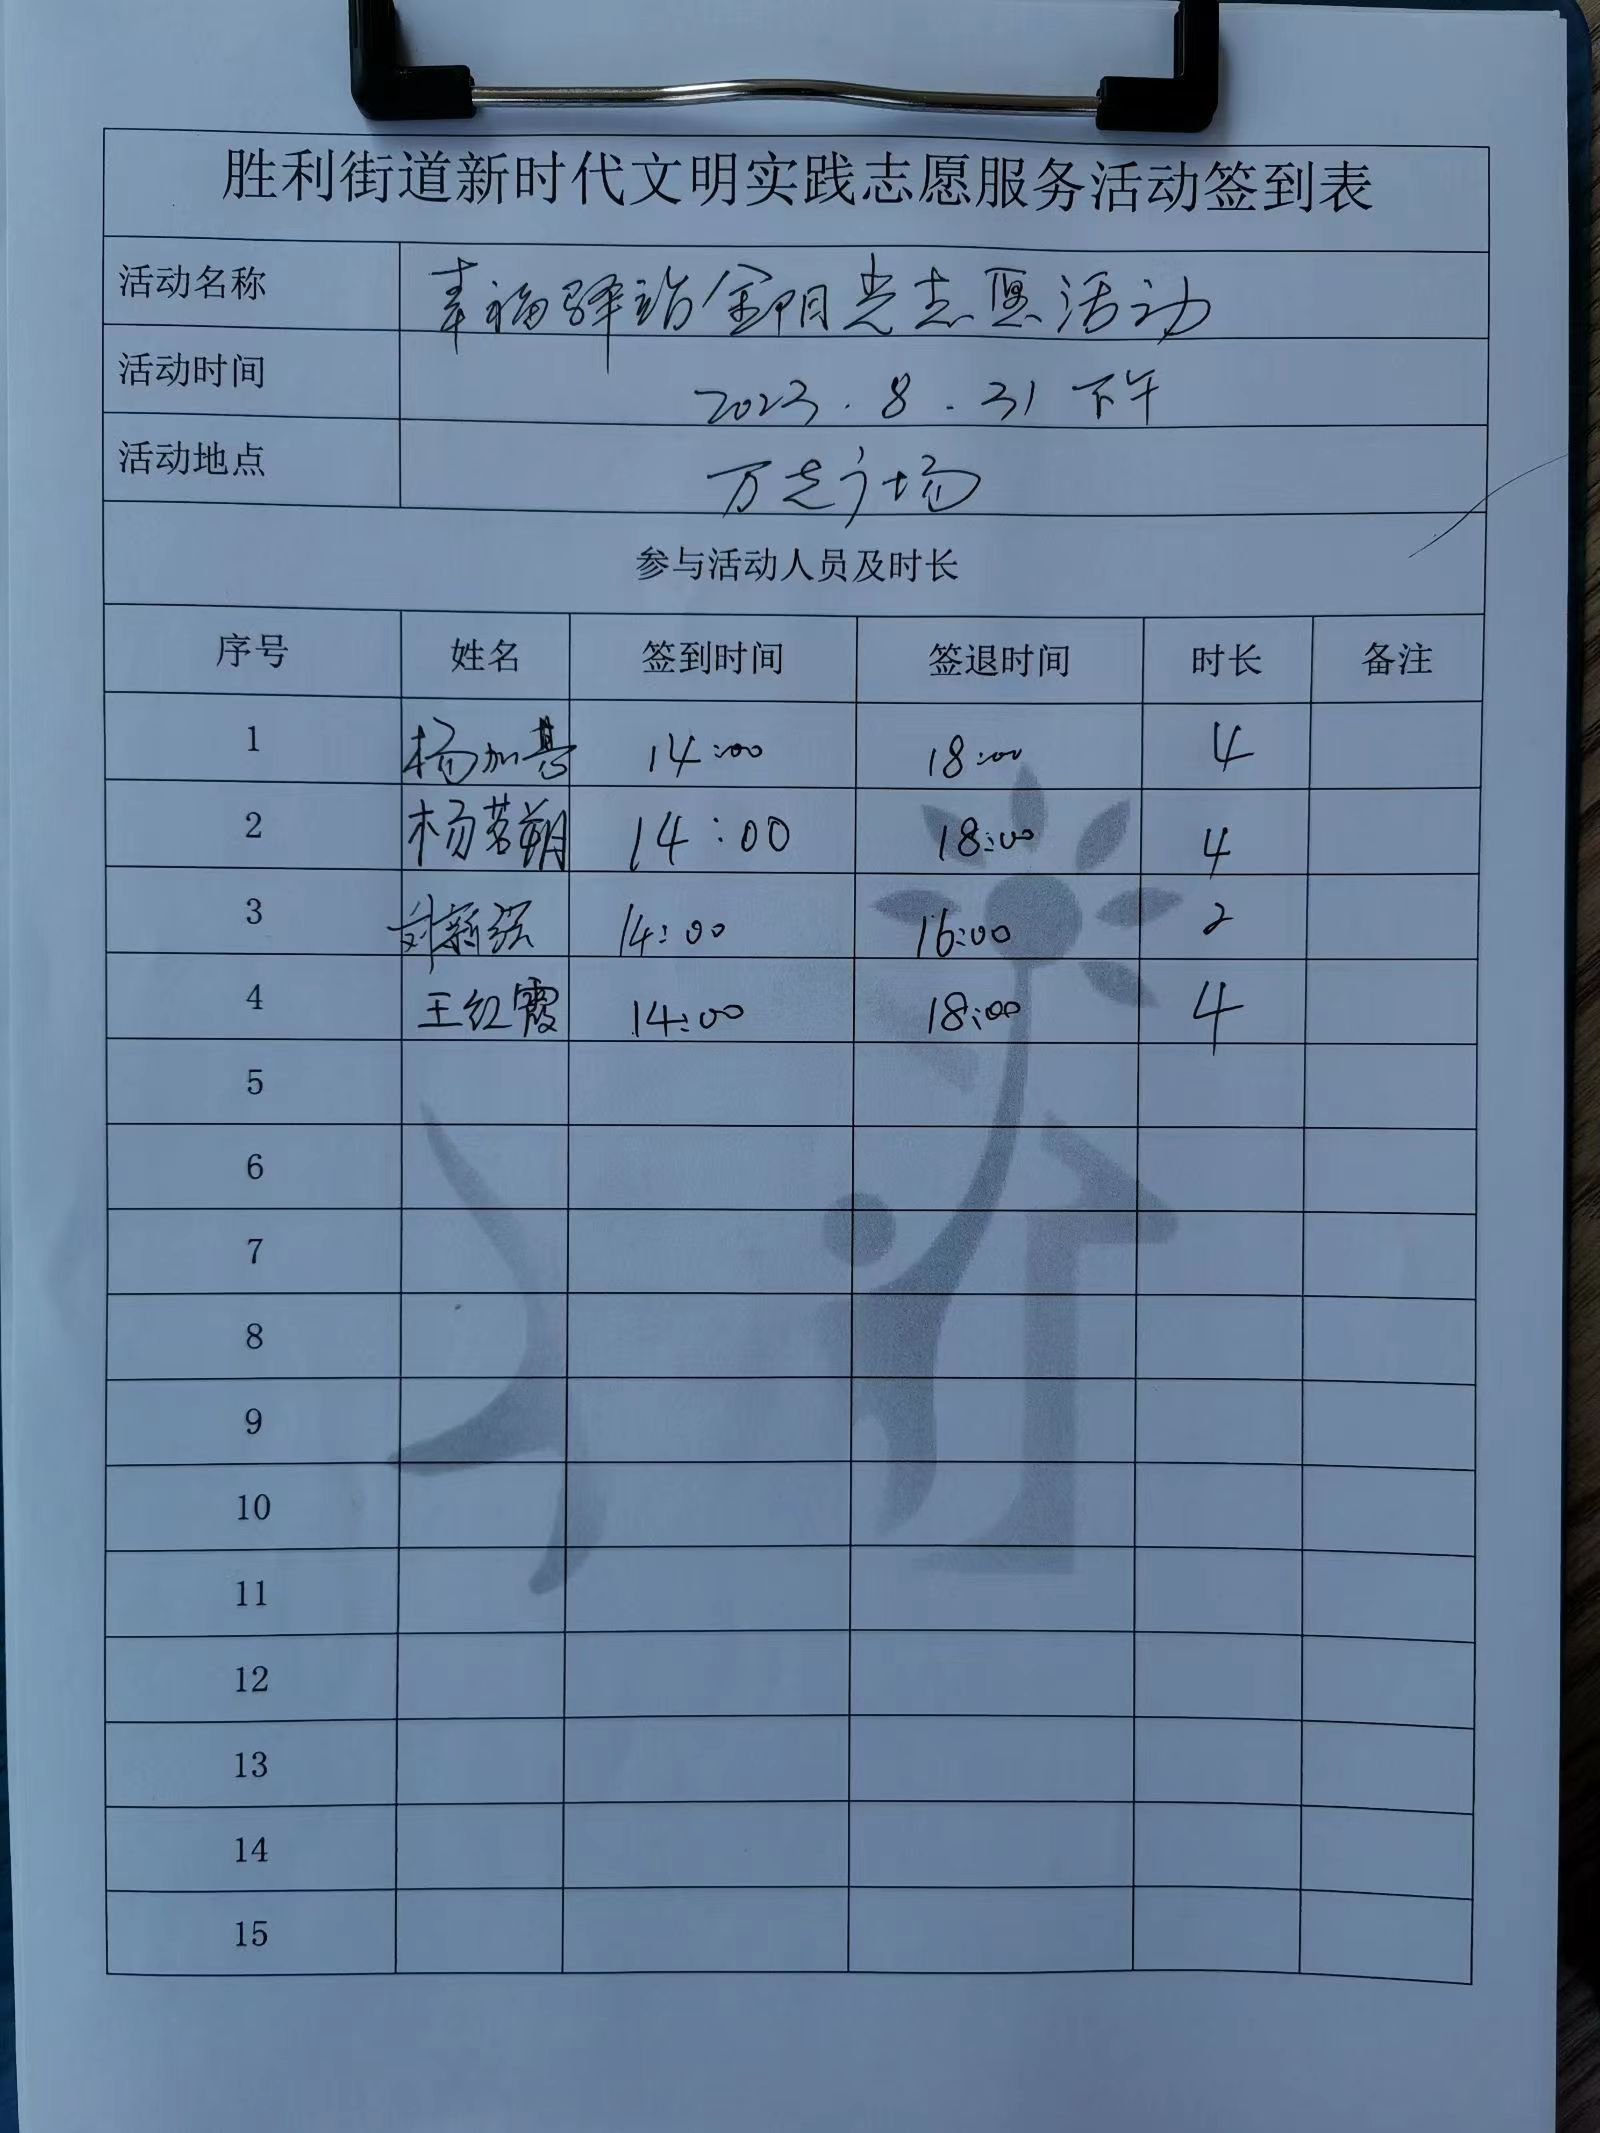 胜利街道新时代文明实践志愿服务活动签到表
活动名称 幸福驿站金阳光志愿活动
活动时间 2023.8.31下午
活动地点 万达广场
参与活动人员及时长
序号 姓名 签到时间 签退时间 时长 备注
1 杨加 14:00 18:00 4
2 杨茗朔 14:00 18:00 4
3 刘新 14:00 16:00 2
4 王红霞 14:00 18:00 4
5
6
7
8
9
10
11
12
13
14
15